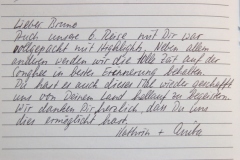 Lieber Bruno
Auch unsere 6. Reise mit Dir war
vollgepackt mit Highlights. Neben allem
anderen werden wir die tolle Zeit auf der
in bester Erinnerung behalten.
Du hast es auch dieses Mal wieder geschafft
uns von Deinem Land zu begeistern.
Wir danken Dir herzlich, dass Du uns
dies ermöglicht hast.
Kathrin +